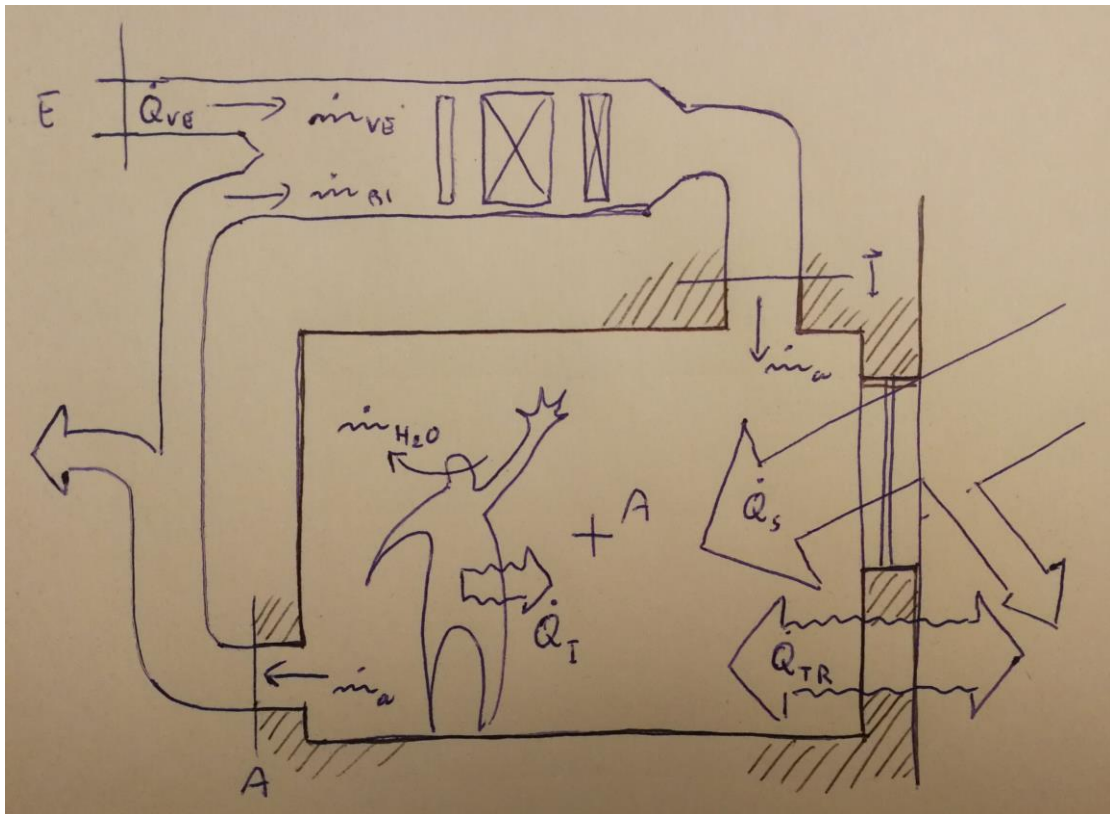 E
Q̇VE
ṁVE
ṁRI
I
ṁa
ṁH2O
A
Q̇S
Q̇I
Q̇TR
ṁa
A